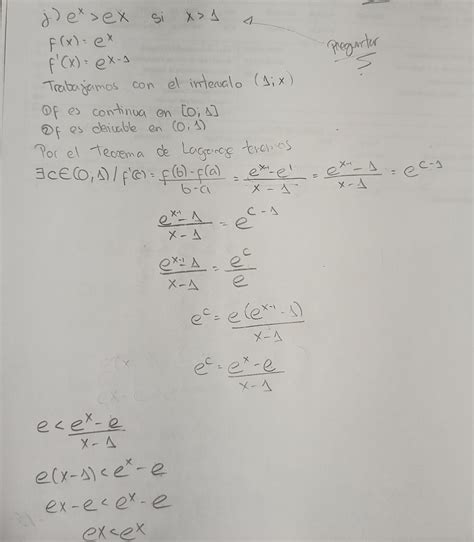 j) e^x > ex si x > 1
preguntar
f(x) = e^x
f'(x) = e^(x-1)
Trabajamos con el intervalo (1; x)
① f es continua en [0, 1]
② f es derivable en (0, 1)
Por el Teorema de Lagrange tenemos
∃ c ∈ (0, 1) / f'(c) = (f(b) - f(a))/(b - a) = (e^(x-1) - e^1)/(x - 1) = (e^(x-1) - 1)/(x - 1) = e^(c-1)
(e^(x-1) - 1)/(x - 1) = e^(c-1)
(e^(x-1) - 1)/(x - 1) = e^c/e
e^c = e(e^(x-1) - 1)/(x - 1)
e^c = (e^x - e)/(x - 1)
e < (e^x - e)/(x - 1)
e(x - 1) < e^x - e
ex - e < e^x - e
ex < e^x